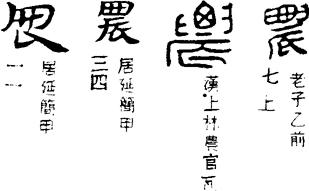 農
老子乙前
七上
農
漢上林農官瓦
農
居延簡甲
三四
居延簡甲